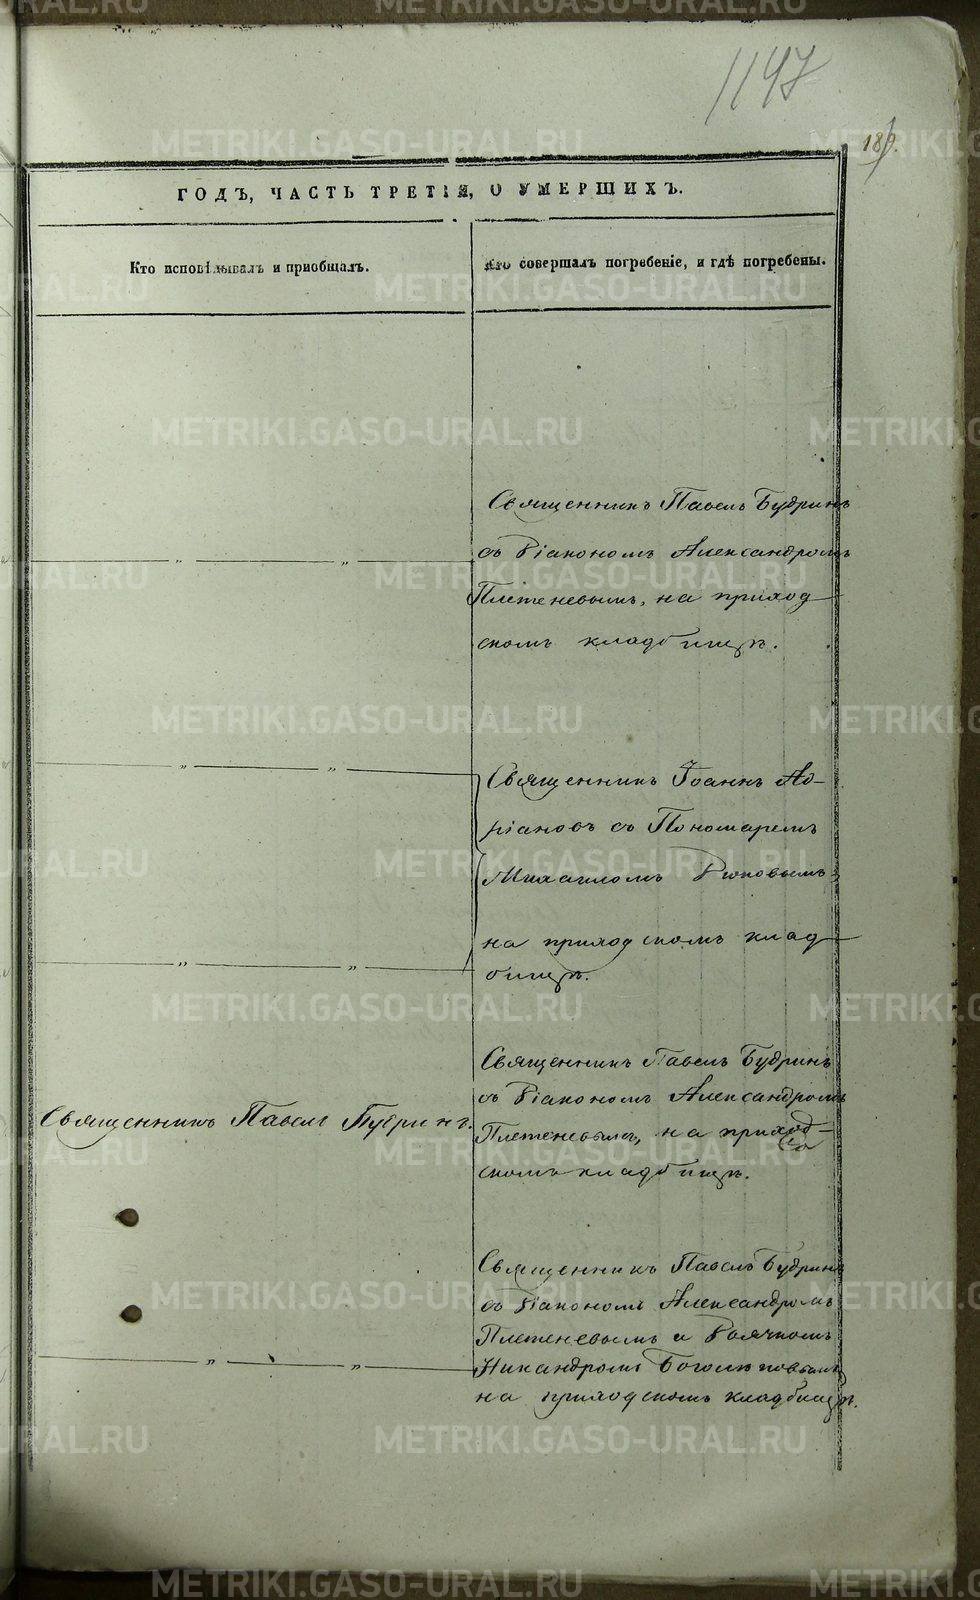 1147
189.
ГОДЪ, ЧАСТЬ ТРЕТІЯ, О УМЕРШИХЪ.
Кто исповѣдывалъ и приобщалъ.
Кто совершалъ погребеніе, и гдѣ погребены.
Священникъ Павелъ Будринъ
съ Діакономъ Александромъ
Плетеневымъ, на приход
скомъ кладбищѣ.
Священникъ Іоаннъ Ад-
ріановъ съ Пономаремъ
Михаиломъ
на приходскомъ клад
бищѣ.
Священникъ Павелъ Будринъ.
Священникъ Павелъ Будринъ
съ Діакономъ Александромъ
Плетеневымъ, на приход-
скомъ кладбищѣ.
Священникъ Павелъ Будринъ
съ Діакономъ Александромъ
Плетеневымъ и Дьячкомъ
Никандромъ Боголюповымъ
на приходскомъ кладбищѣ.
METRIKI.GASO-URAL.RU